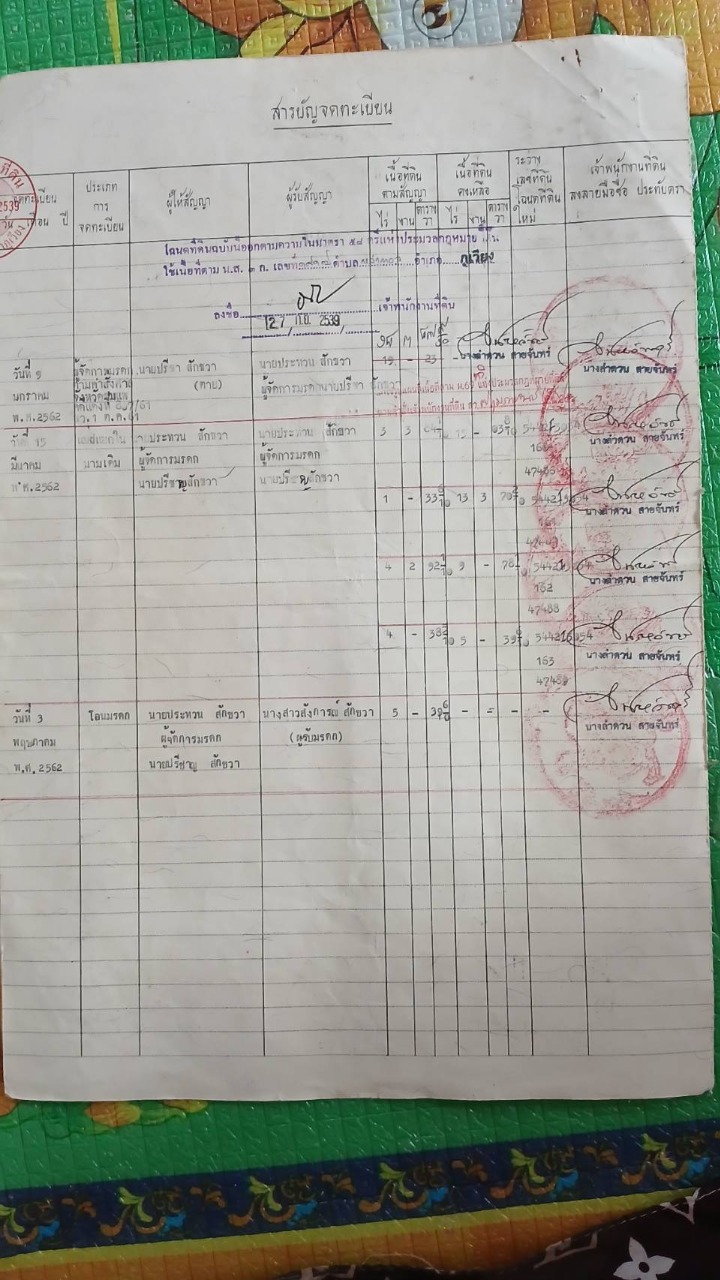 สารบัญจดทะเบียน
จดทะเบียน
เดือน ปี
ประเภท
การ
จดทะเบียน
ผู้ให้สัญญา
ผู้รับสัญญา
เนื้อที่ดิน
ตามสัญญา
ไร่ งาน ตาราง
วา
เนื้อที่ดิน
คงเหลือ
ไร่ งาน ตาราง
วา
ระวาง
เลขที่ดิน
โฉนดที่ดิน
ใหม่
เจ้าพนักงานที่ดิน
ลงลายมือชื่อ ประทับตรา
2539
โฉนดที่ดินฉบับนี้ออกตามความในมาตรา ๕๘ ตรี แห่งประมวลกฎหมายที่ดิน
ใช้เนื้อที่ตาม น.ส. ๓ ก. เลขที่ ตำบล อำเภอ ภูเวียง
ลงชื่อ เจ้าพนักงานที่ดิน
27 ก.ย. 2539
วันที่ 9
มกราคม
พ.ศ.2562
ผู้จัดการมรดก
นายปรีชา สักขวา
(ตาย)
นายประทวน สักขวา
ผู้จัดการมรดกนายปรีชา สักขวา
19 - 23
นางลำดวน สายจันทร์
นางลำดวน สายจันทร์
วันที่ 15
มีนาคม
พ.ศ.2562
แบ่งแยกใน
นามเดิม
นายประทวน สักขวา
ผู้จัดการมรดก
นายปรีชาญ สักขวา
นายประทวน สักขวา
ผู้จัดการมรดก
นายปรีชาญ สักขวา
3 3
15 -
นางลำดวน สายจันทร์
1 - 33 13 3
นางลำดวน สายจันทร์
4 2 92 9 -
162
47488
นางลำดวน สายจันทร์
4 - 38 5 - 39
163
นางลำดวน สายจันทร์
วันที่ 3
พฤษภาคม
พ.ศ.2562
โอนมรดก
นายประทวน สักขวา
ผู้จัดการมรดก
นายปรีชาญ สักขวา
นางสาวสังการณ์ สักขวา
(ผู้รับมรดก)
5 - 39 - = - -
นางลำดวน สายจันทร์